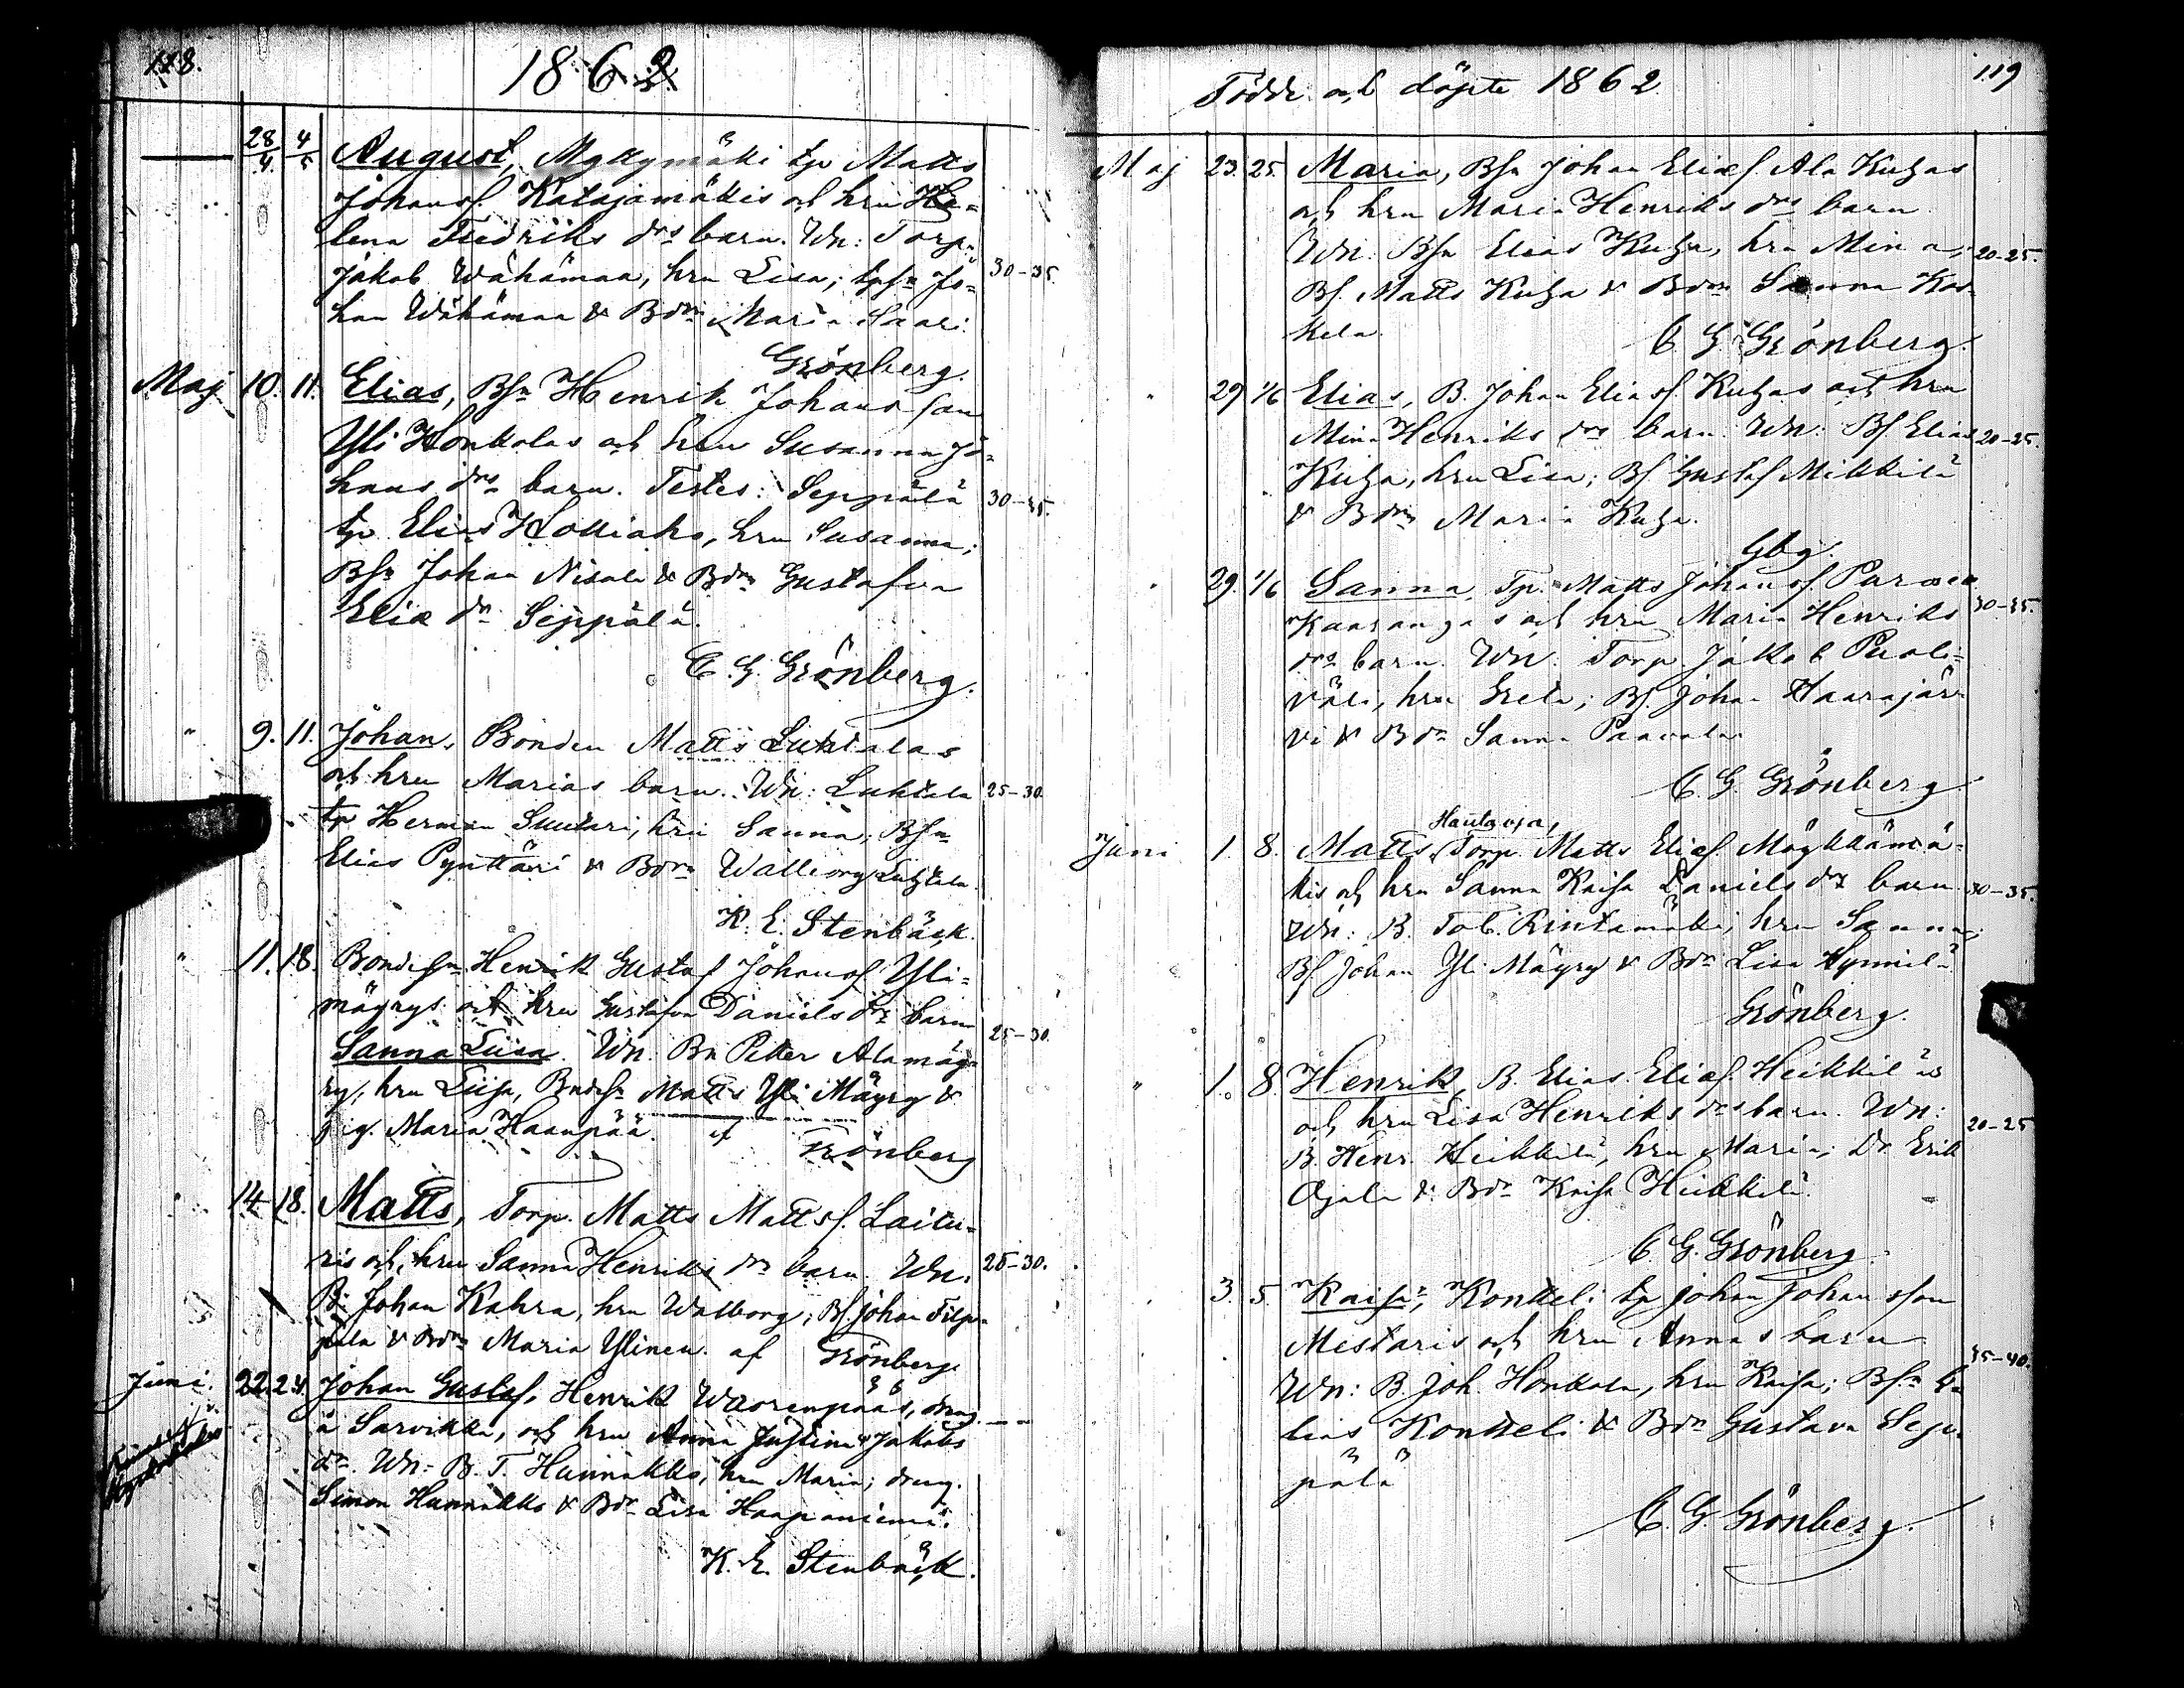 118.
1862.
28/4 4/5 August, Mykkymäki tp Matts
Johansf. Katajamäkis och hru He=
lena Fredriks drs barn. Wn: Torp.
Jakob Wähämaa, hru Lisa; tpsn Jo= 30-35.
han Wähämaa & Bdrn Maria Saari.
Grönberg.
Maj 10. 11. Elias, Bsn Henrik Johansson
Yli Honkolas och hru Susanna Jo=
hans drs barn. Testes: Seppälä 30-35.
tp Elias, hru Susanna;
Bsn Johan Nisula & Bdrn Gustafva
Eliæ dr Seppälä.
C. G. Grönberg.
" 9. 11. Johan, Bonden Matts Luhtalas
och hru Marias barn. Wn: Luhtala 25-30
tp Herman Suutari, hru Sanna; Bsn
Elias Pynttäri & Bdrn Walborg Luhtala.
K. E. Stenbäck.
" 11. 18. Bondesn Henrik Gustaf Johansf. Yli=
mäyrys och hru Gustafva Daniels drs barn
Sanna Liisa. Wn. Bn Petter Alamäy= 25-30.
ry, hru Liisa, Bndesn Matts Yli Mäyry &
pig. Maria Haanpää. af Grönberg
" 14 18. Matts, Torp. Matts Mattsf. Laitu=
ris och hru Sanna Henriks drs barn. Wn. 25-30.
B: Johan Kahra, hru Walborg; Bf. Johan Filp=
pula & Bdrn Maria Ylinen. af Grönberg
Juni. 22. 24. Johan Gustaf, Henrik Waorenpääs, dräng
å Sarvikka, och hru Anna Justina Jakobs
dr. Wn: B. T. Hannukka, hru Maria; dreng.
Simon Hannukka & Bdr Lisa Haapaniemi.
K. E. Stenbäck.
119
Födde och döpte 1862
Maj 23. 25. Maria, Bsn Johan Eliæf. Ala Kuhas
och hru Maria Henriks drs barn
Wn: Bsn Elias Kuha, hru Mina; 20-25.
Bf. Matts Kuha & Bdrn Sanna Kos=
kela. C. G. Grönberg.
" 29 1/6 Elias, B. Johan Eliasf. Kuhas och hru
Mina Henriks drs barn. Wn: Bf Elias 20-25.
Kuha, hru Lisa; Bf Gustaf Mikkilä
& Bdrn Maria Kuha.
Gbg.
" 29. 1/6 Sanna, Tp. Matts Johansf.
Kaarangas och hru Maria Henriks 30-35.
drs barn. Wn. Torp. Jakob Puoli=
väli, hru Greta; Bf. Johan Haarajär=
vi & Bdr Sanna Paavola.
C. G. Grönberg
Hautaoja,
Juni 1. 8. Matts, Torp. Matts Eliæf. Mäykkämä=
kis och hru Sanna Kaisa Daniels drs barn 30-35.
Wn: B. Tob. Rintamäki, hru Sanna;
Bf Johan Yli Mäyry & Bdr Lisa Hynnilä
Grönberg.
" 1. 8. Henrik, B. Elias Eliæf. Heikkiläs
och hru Lisa Henriks drs barn. Wn: 20-25
B. Henr. Heikkilä, hru Maria; Dr. Erik
Ojala & Bdr Kaisa Heikkilä.
C. G. Grönberg.
" 3. 5. Kaisa, Kontteli tp Johan Johansson
Mestaris och hru Annas barn
Wn: B. Joh. Honkola, hru Kaisa; Bsn E= 35-40.
lias Kontteli & Bdr Gustava Sep=
pälä
C. G. Grönberg.